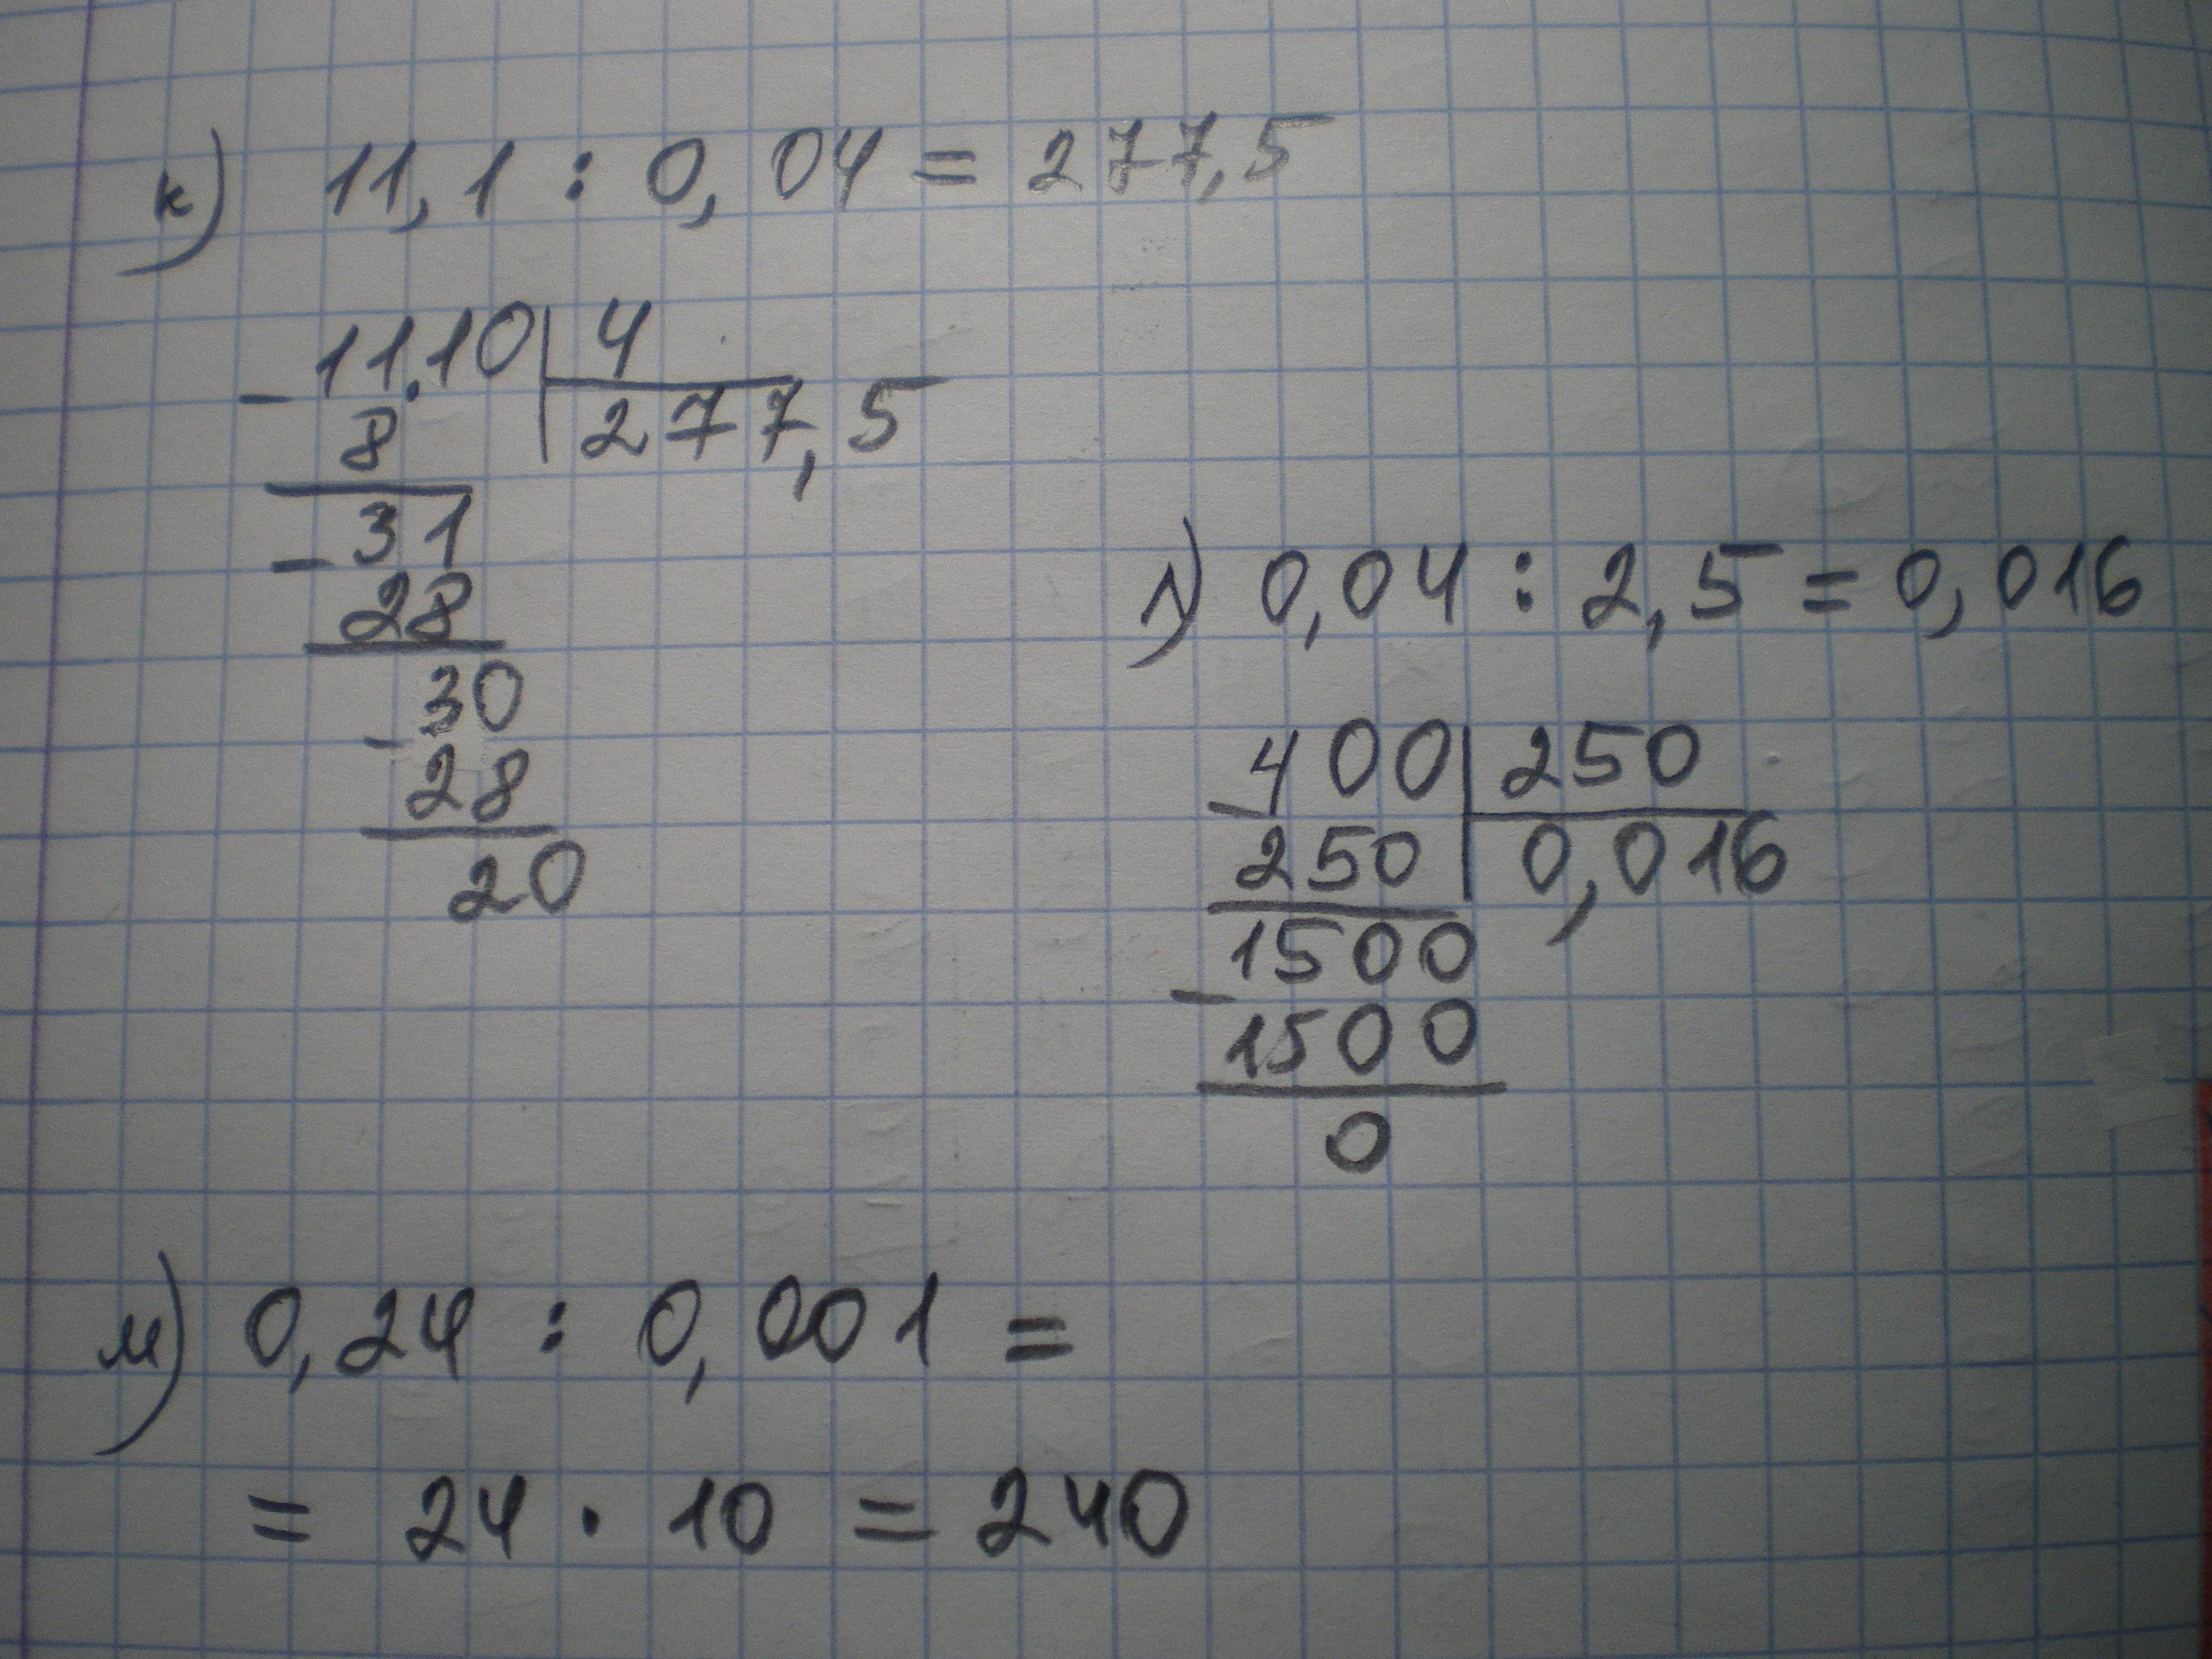 к) 11,1 : 0,04 = 277,5
- 11.10 | 4
8 | 277,5
- 31
28
- 30
28
20
л) 0,04 : 2,5 = 0,016
- 400 | 250
250 | 0,016
- 1500
1500
0
м) 0,24 : 0,001 =
= 24 · 10 = 240